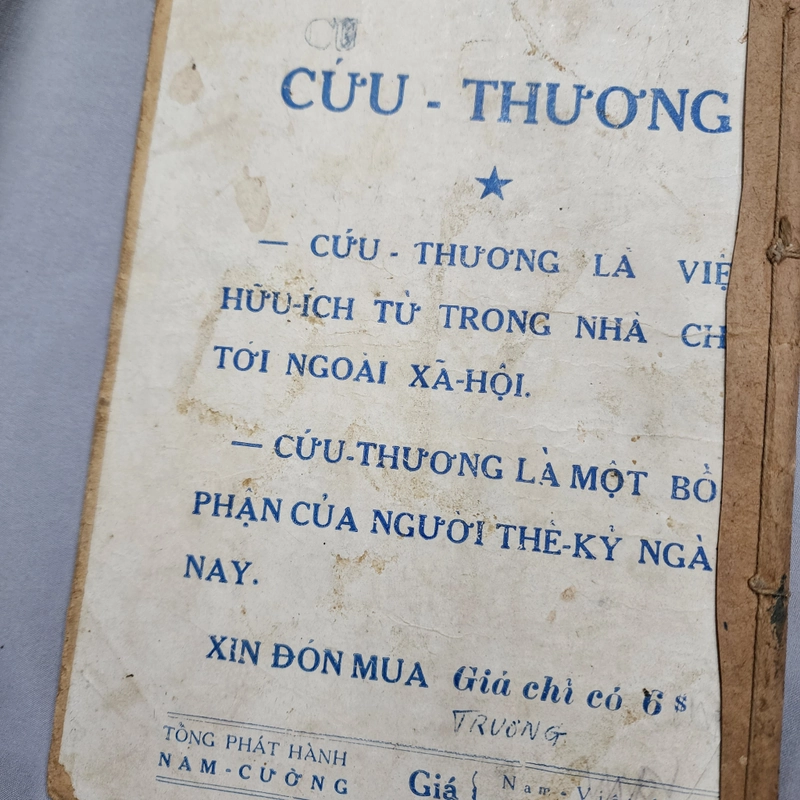 CỨU - THƯƠNG
— CỨU - THƯƠNG LÀ VIỆ
HỮU-ÍCH TỪ TRONG NHÀ CH
TỚI NGOÀI XÃ-HỘI.
— CỨU-THƯƠNG LÀ MỘT BỔ
PHẬN CỦA NGƯỜI THẾ-KỶ NGÀ
NAY.
XIN ĐÓN MUA Giá chỉ có 6$
TRUONG
TỔNG PHÁT HÀNH
NAM-CƯỜNG
Giá { Nam-Việ